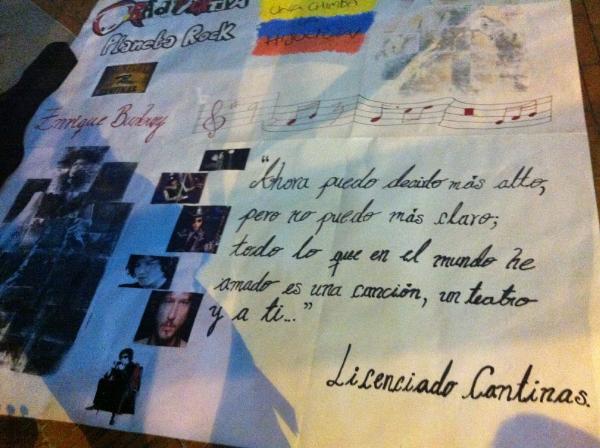 Planeta Rock
Una Chimba
Enrique Bunbury
"Ahora puedo decirlo más alto,
pero no puedo más claro;
todo lo que en el mundo he
amado es una canción, un teatro
y a ti..."
Licenciado Cantinas.